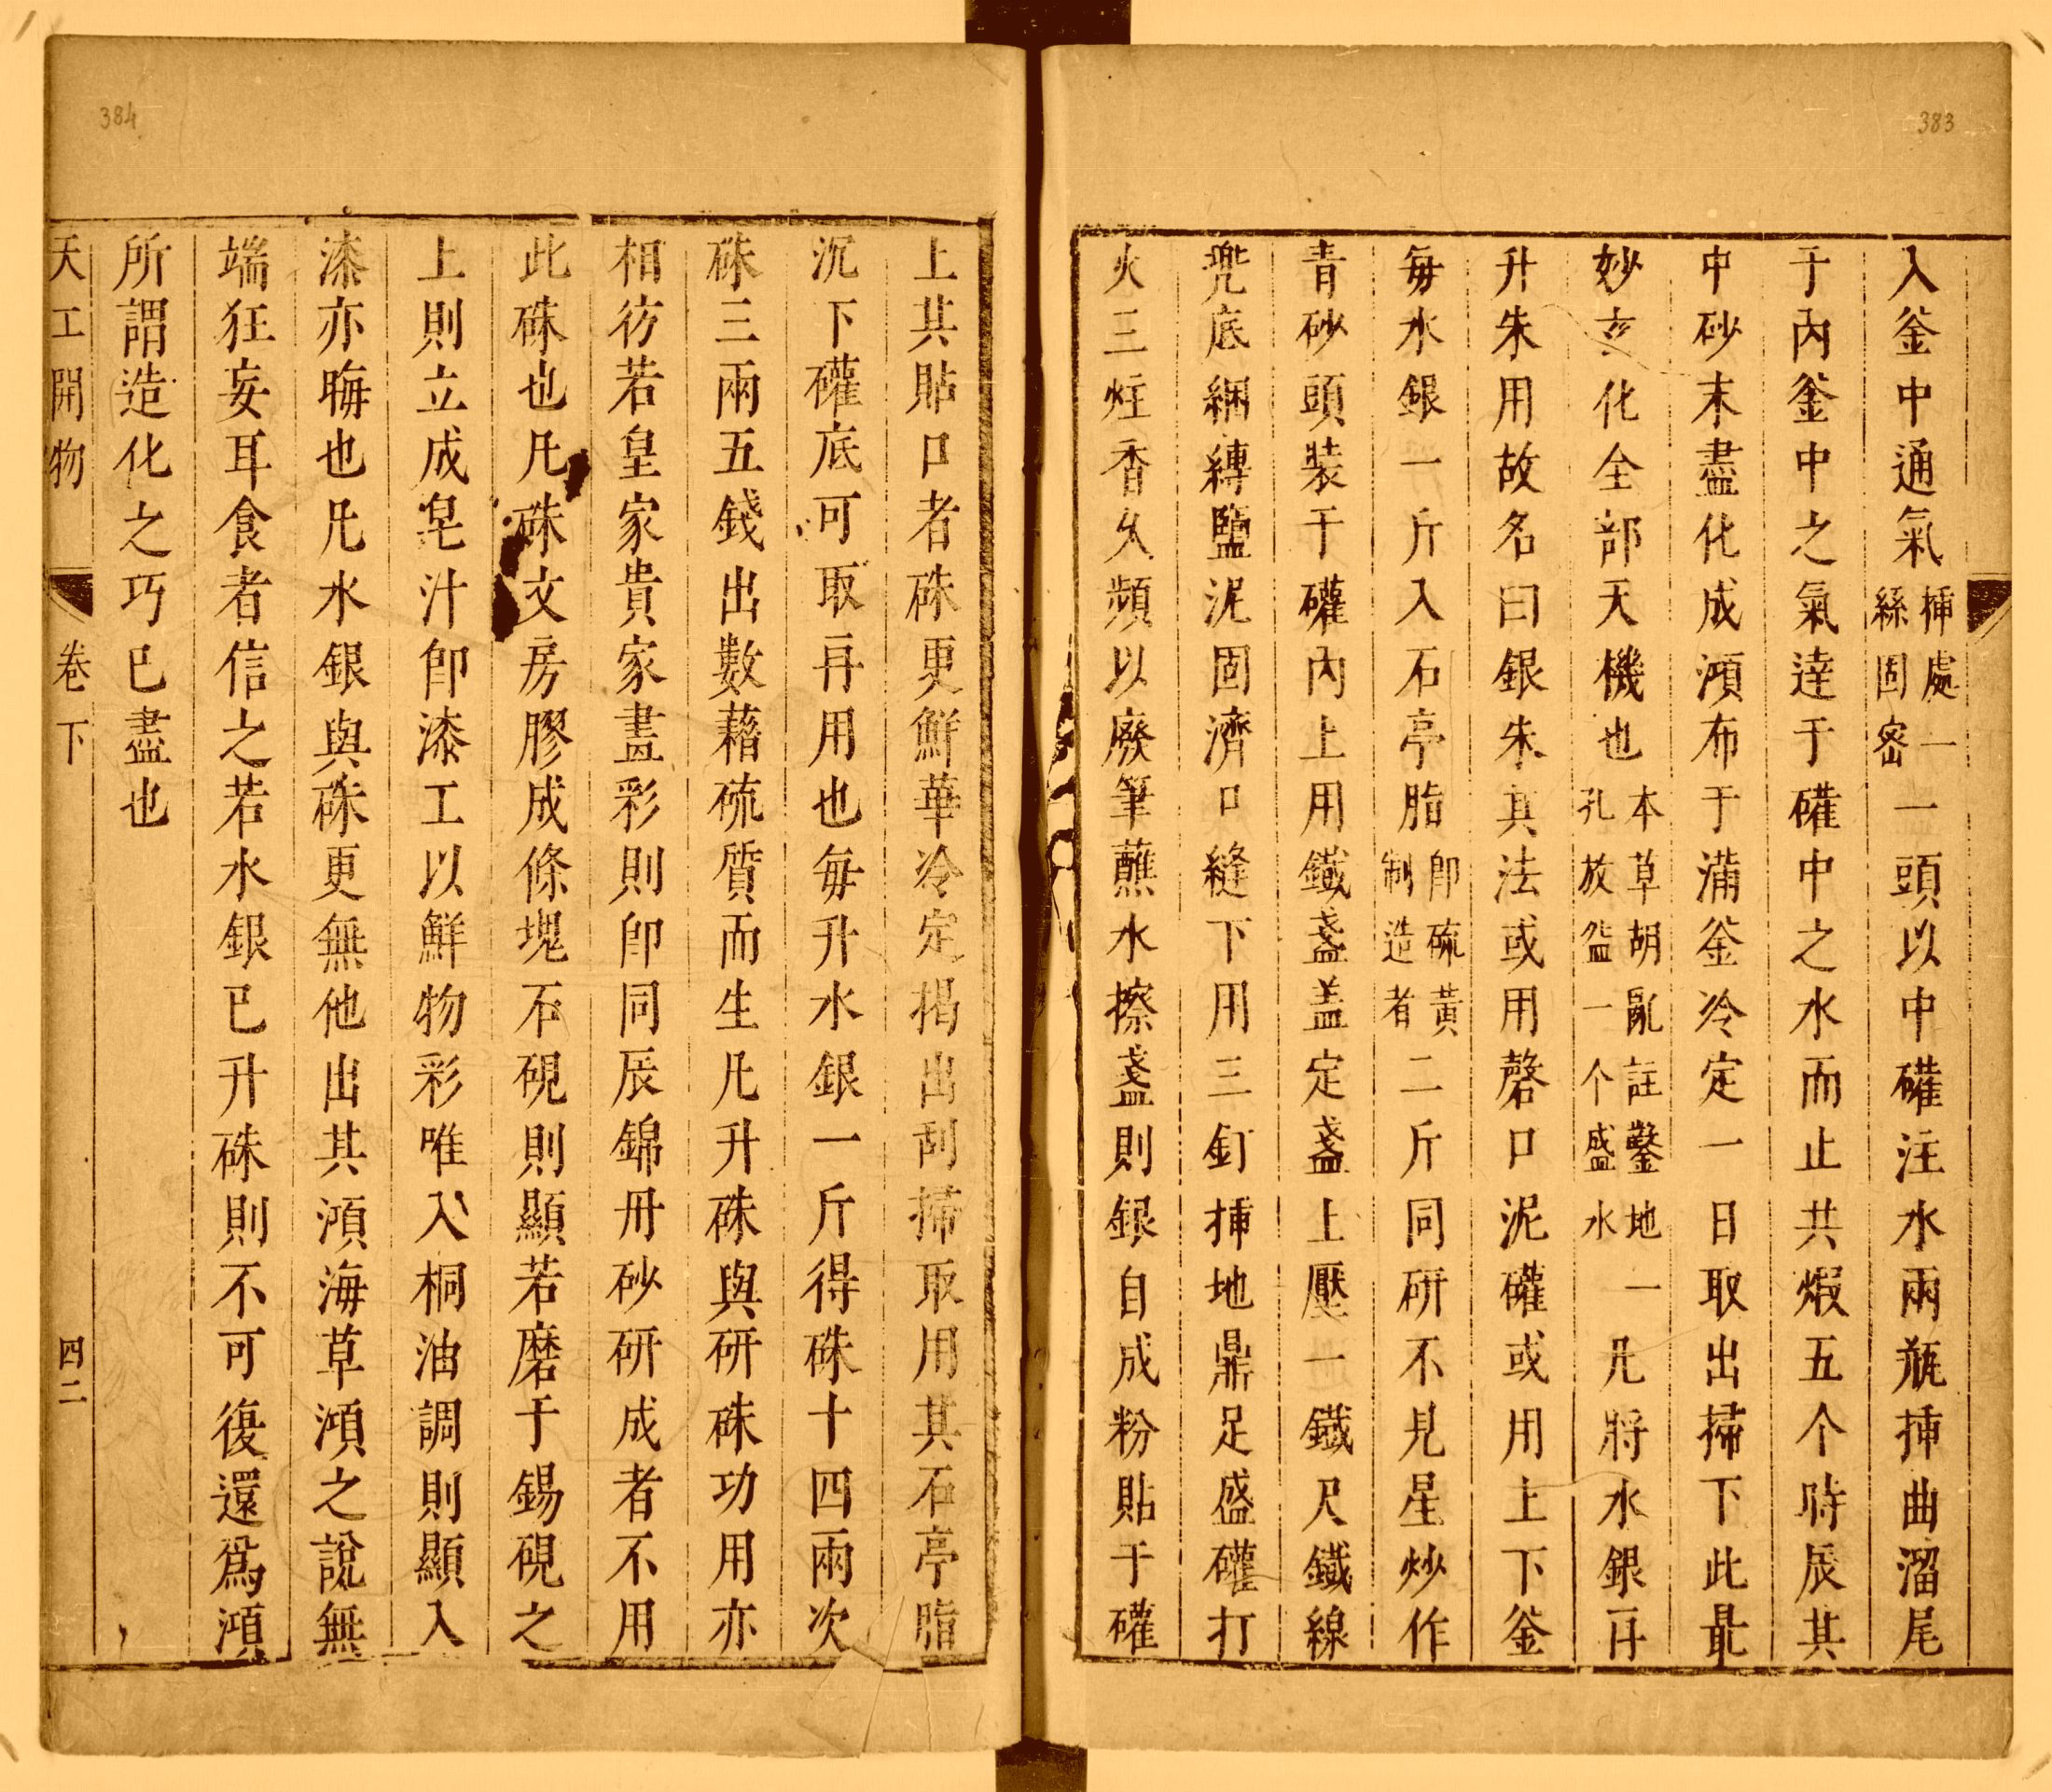 383
入釜中通氣揷處一絲固密一頭以中礶注水兩瓶揷曲溜尾
于內釜中之氣達于礶中之水而止共煆五个時辰其
中砂末盡化成澒布于滿釜冷定一日取出掃下此最
妙玄化全部天機也本草胡亂註鑿地一孔放盌一个盛水凡將水銀再
升朱用故名曰銀朱其法或用磬口泥礶或用上下釜
每水銀一斤入石亭脂卽硫黃制造者二斤同研不見星炒作
青砂頭裝于礶內上用鐵盞盖定盞上壓一鐵尺鐵線
兜底綑縛鹽泥固濟口縫下用三釘揷地鼎足盛礶打
火三炷香久頻以廢筆蘸水擦盞則銀自成粉貼于礶
384
上其貼口者硃更鮮華冷定揭出刮掃取用其石亭脂
沉下礶底可取再用也每升水銀一斤得硃十四兩次
硃三兩五錢出數藉硫質而生凡升硃與研硃功用亦
相彷若皇家貴家畫彩則卽同辰錦丹砂研成者不用
此硃也凡硃文房膠成條塊石硯則顯若磨于錫硯之
上則立成皂汁卽漆工以鮮物彩唯入桐油調則顯入
漆亦晦也凡水銀與硃更無他出其澒海草澒之說無
端狂妄耳食者信之若水銀已升硃則不可復還爲澒
所謂造化之巧已盡也
天工開物 卷下 四二